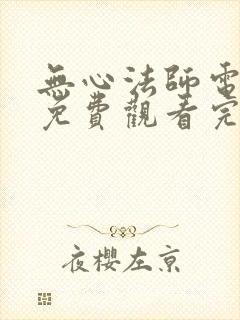 無心法師電
免費觀看完
夜櫻左京